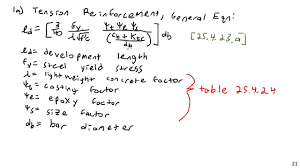 1a) Tension Reinforcement, General Eqn:
ld = [3/40 fy/(λ√f'c) ψt ψe ψs/((cb + Ktr)/db)] db [25.4.2.3.a]
ld = development length
fy = steel yield stress
λ = lightweight concrete factor
ψt = casting factor
ψe = epoxy factor
ψs = size factor
db = bar diameter
table 25.4.2.4
21